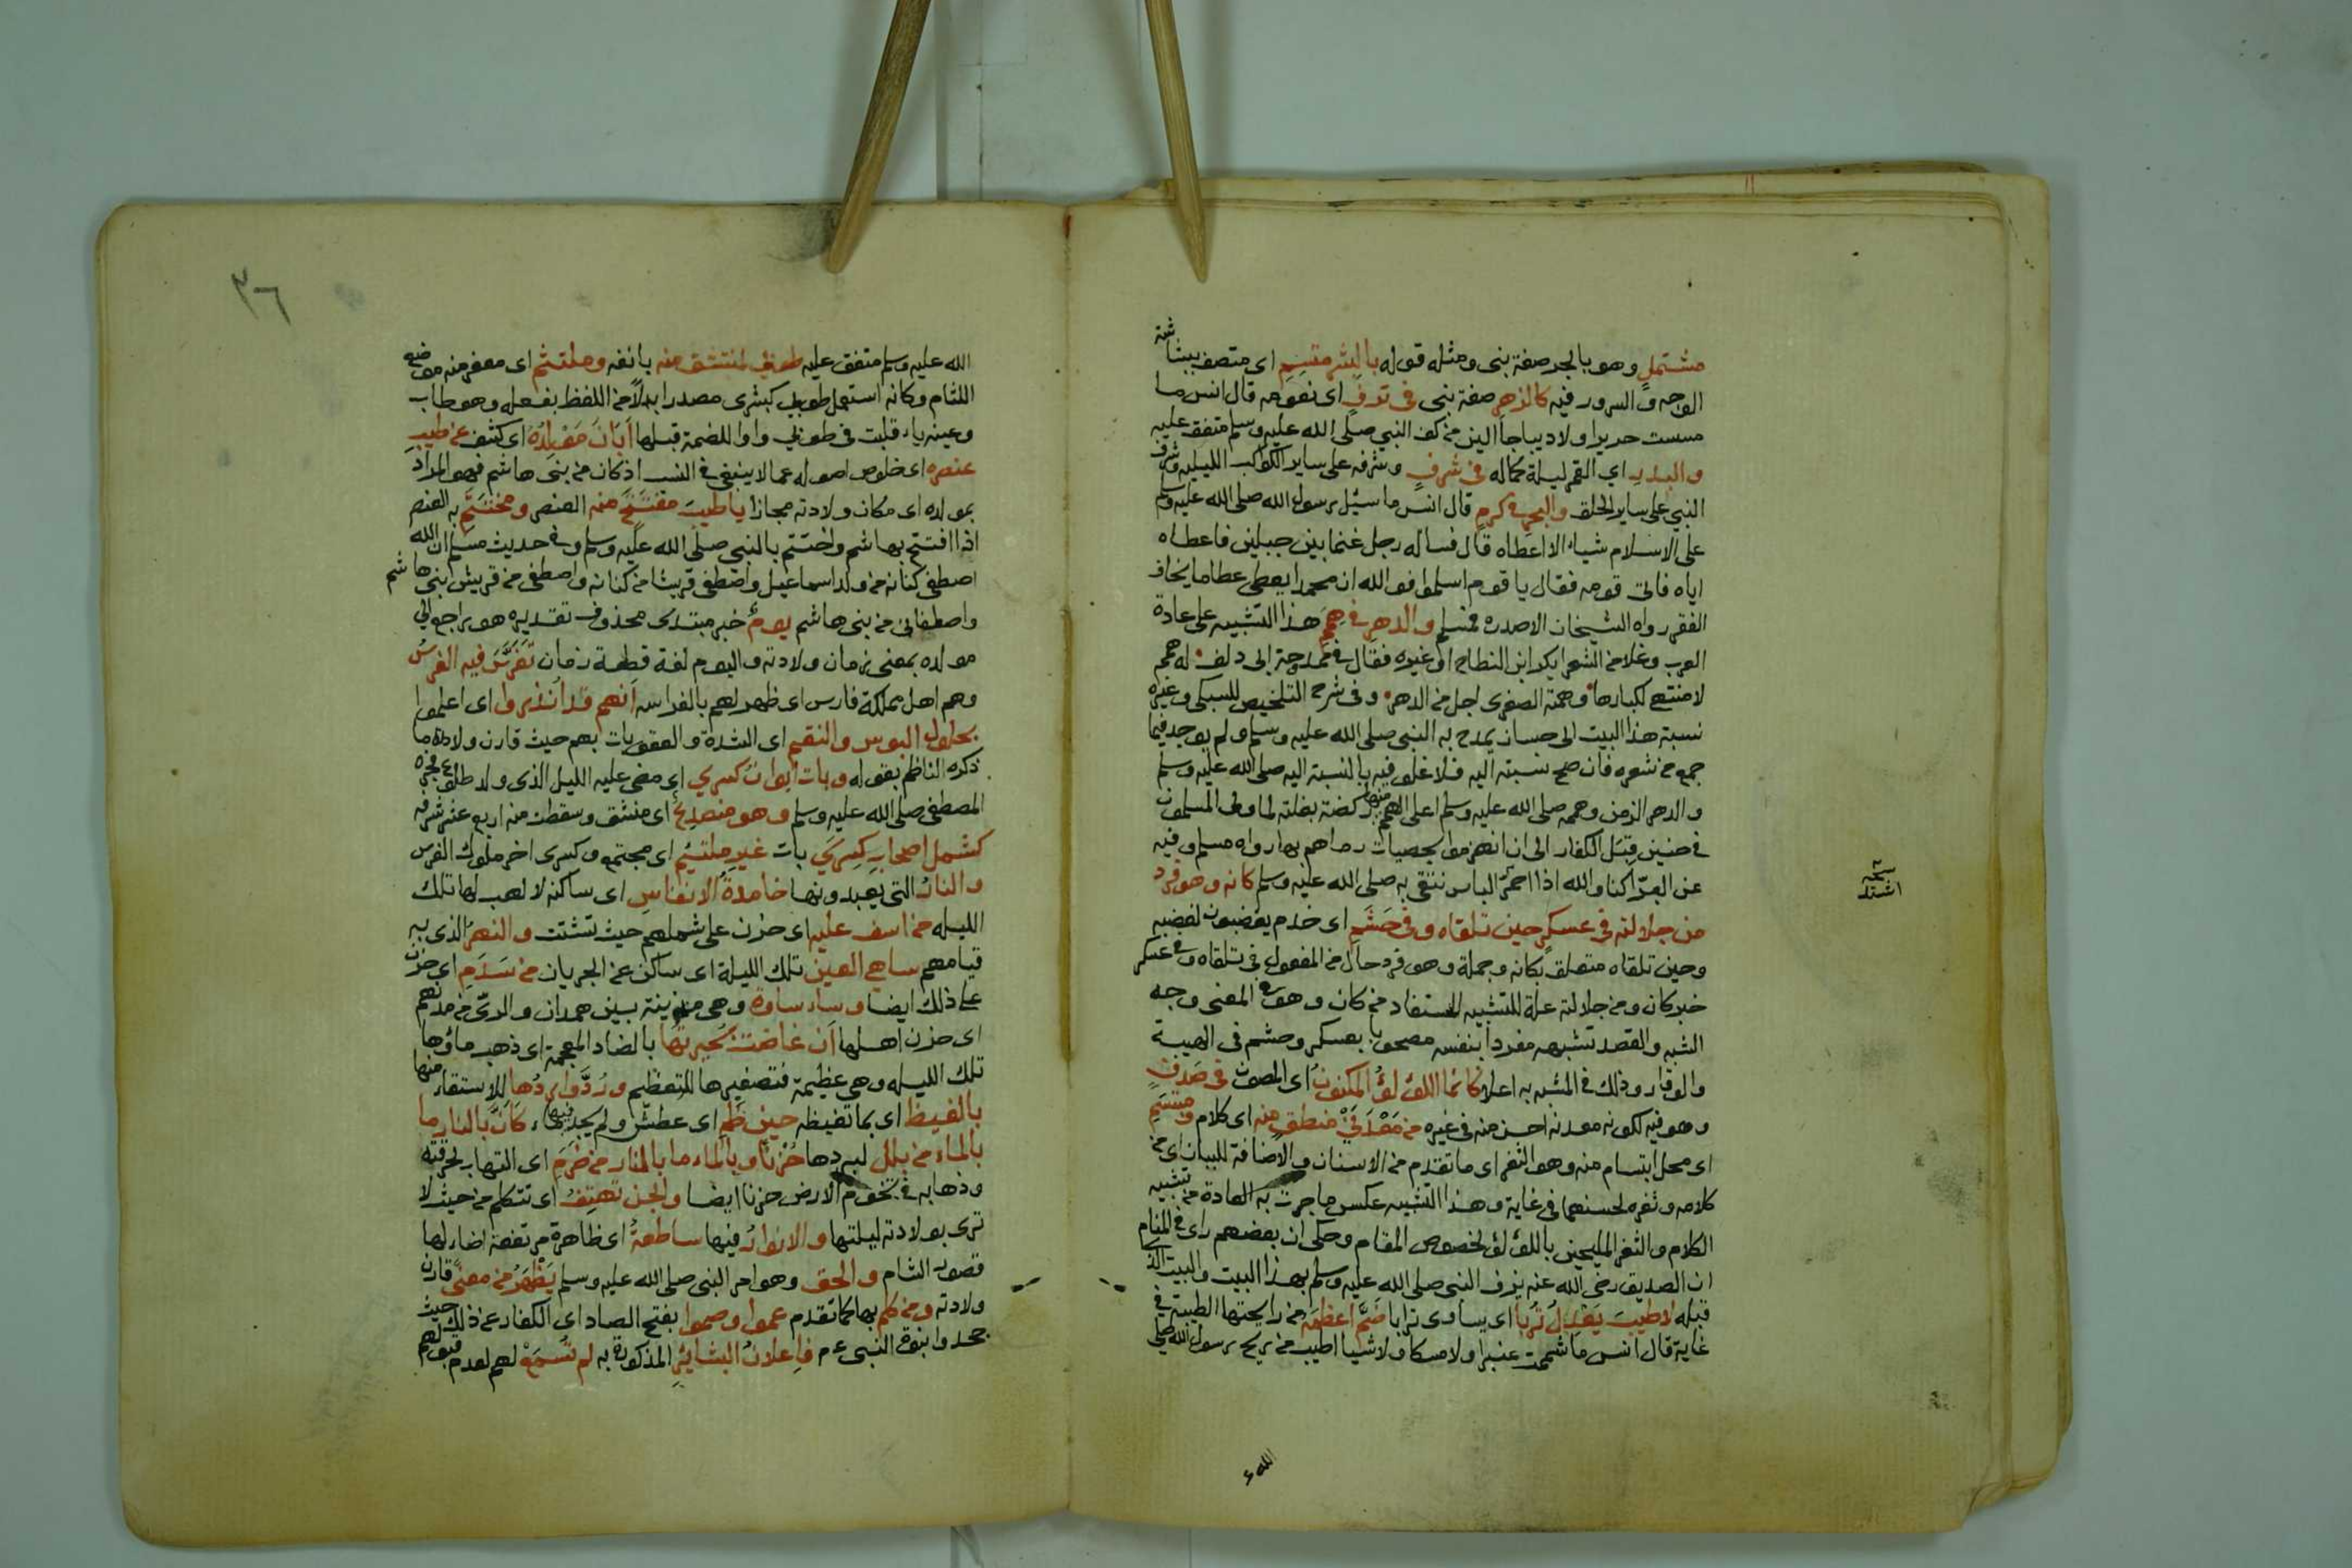 مشتملٍ وهو بالجر صفة نبي ومثله قوله بالبشر متسم اي متصف ببشاشة
الوجه والسرور فيه كالزهر صفة نبي في ترفٍ اى نعومه قال انس ما
مسست حريرا ولا ديباجا الين من كف النبي صلى الله عليه وسلم متفق عليه
والبدر اي القمر ليلة كماله في شرفٍ وشرفه على ساير الكواكب الليليه وشرف
النبي على ساير الخلق والبحر في كرم قال انس ما سئيل رسول الله صلى الله عليه وسلم
على الاسلام شياء الا اعطاه قال فساله رجل غنما بين جبلين فاعطاه
اياه فاتى قومه فقال يا قوم اسلموا فوالله ان محمدا يعطي عطا ما يخاف
الفقر رواه الشيخان الا صدره فمسلم والدهر في همم هذا التشبيه على عادة
العرب وغلا من الشعرا بكر ابن النطاح او غيره فقال في ممدوحة ابى دلف له همم
لا منتهى لكبارها وهمته الصغرى اجل من الدهر وفي شرح التلخيص للسبكي وغيره
نسبة هذا البيت الى حسان يمدح به النبي صلى الله عليه وسلم ولم يوجد فيما
جمع من شعره فان صح نسبته اليه فلا غلو فيه بالنسبة اليه صلى الله عليه وسلم
والدهر الزمن وهممه صلى الله عليه وسلم اعلى الهمم منها ركضه بغلته لما ولى المسلمون
في حنين قبل الكفار الى ان انهزموا بحصيات رماهم بها رواه مسلم وفيه
عن البرّا كنا والله اذا احمرّ الباس نتقي به صلى الله عليه وسلم كانه وهو فرد
من جلالته في عسكرٍ حين تلقاه وفي حشم اى خدم يغضبون لغضبه
وحين تلقاه متعلق بكانه وجملة وهو فرد حال من المفعول في تلقاه وفي عسكر
خبر كان ومن جلالته علة للتشبيه المستفاد من كان وهو في المعنى وجه
الشبه والقصد تشبيهه مفردا بنفسه مصحوبا بعسكر وحشم في الهيبة
والوقار وذلك في المشبه به اعلا كانما اللؤلؤ المكنون اى المصون في صدف
وهو فيه لكونه معدنه احسن منه في غيره من معدني منطق منه اى كلام ومبتسم
اى محل ابتسام منه وهو الثغر اى ما تقدم من الاسنان والاضافة للبيان اى من
كلامه وثغره لحسنهما في غاية وهذا التشبيه عكس ما جرت به العادة من تشبيه
الكلام والثغر المليحين باللؤلؤ لخصوص المقام وحكى ان بعضهم راى في المنام
ان الصديق رضي الله عنه يزف النبي صلى الله عليه وسلم بهذا البيت والبيت الذى
قبله لا طيب يعدل تربا اى يساوى ترابا ضم اعظمه من رايحتها الطيبة في
غاية قال انس ما شممت عنبرا ولا مسكا ولا شيا اطيب من ريح رسول الله صلى
الله ء
نسخه
اشتد
٣٦
الله عليه وسلم متفق عليه طوبى لمنتشق منه بانفه وملتثم اى معفر منه موضع
اللثام وكانه استعمل طوبى كبشرى مصدرا بدلًا من اللفظ بفعله وهو طاب
وعينه ياء قلبت في طوبى واوا للضمة قبلها أبان مولده اى كشف عن طيب
عنصره اى خلوص اصوله عما لا ينبغي في النسب اذ كان من بنى هاشم فهو المراد
بمولده اى مكان ولادته مجازا يا طيب مفتتحٍ منه العنصر ومختتم به العنصر
اذا افتتح بهاشم واختتم بالنبي صلى الله عليه وسلم وفي حديث مسلم ان الله
اصطفى كنانه من ولد اسماعيل واصطفى قريشا من كنانه واصطفى من قريش بني هاشم
واصطفاني من بنى هاشم يومٌ خبر مبتدى محذوف تقديره هو راجع الى
مولده بمعنى زمان ولادته واليوم لغة قطعة زمان تفرّس فيه الفرس
وهم اهل مملكة فارس اى ظهر لهم بالفراسه انهم قد انذروا اى اعلموا
بحلول البوس والنقم اى الشدة والعقوبات بهم حيث قارن ولادة ما
ذكره الناظم بقوله وبات ايوان كسرى اى مضى عليه الليل الذى ولد طلوع فجره
المصطفى صلى الله عليه وسلم وهو منصدعٌ اى منشق وسقطت منه اربع عشر شرفه
كشمل اصحاب كسرى بات غير ملتئم اى مجتمع وكسرى اخر ملوك الفرس
والنار التى يعبدونها خامدة الانفاس اى ساكنة لا لهب لها تلك
الليله من اسف عليه اى حزن على شملهم حيث تشتت والنهر الذى به
قيامهم ساهي العين تلك الليلة اى ساكن عن الجريان من سدم اى حزن
على ذلك ايضا وساء ساوة وهى مدينة بين همدان والرىّ من مدنهم
اى حزن اهلها أن غاضت بحيرتها بالضاد المعجمة اى ذهب ماؤها
تلك الليله وهي عظيمة فتصغيرها للتعظيم ورُدَّ واردها للاستقاء منها
بالغيظ اى بما تغيظه حين ظمي اى عطش ولم يجد فيها ماء كان بالنار ما
بالماء من بلل لبردها حزنًا وبالماء ما بالنار من ضرم اى التهاب لحرقته
وذهابه في تخوم الارض حزنا ايضا والجن تهتف اى تتكلم من حيث لا
ترى بولادته ليلتها والانوار فيها ساطعةٌ اى ظاهرة مرتفعة اضاء لها
قصور الشام والحق وهو امر النبي صلى الله عليه وسلم يظهر من معنى قارن
ولادته ومن كلم بها كما تقدم عموا وصموا بفتح الصاد اى الكفار عن ذلك حيث
جحدوا نبوة النبى ءم فاعلان البشائر المذكورة به لم تسمع لهم لعدم قبولهم